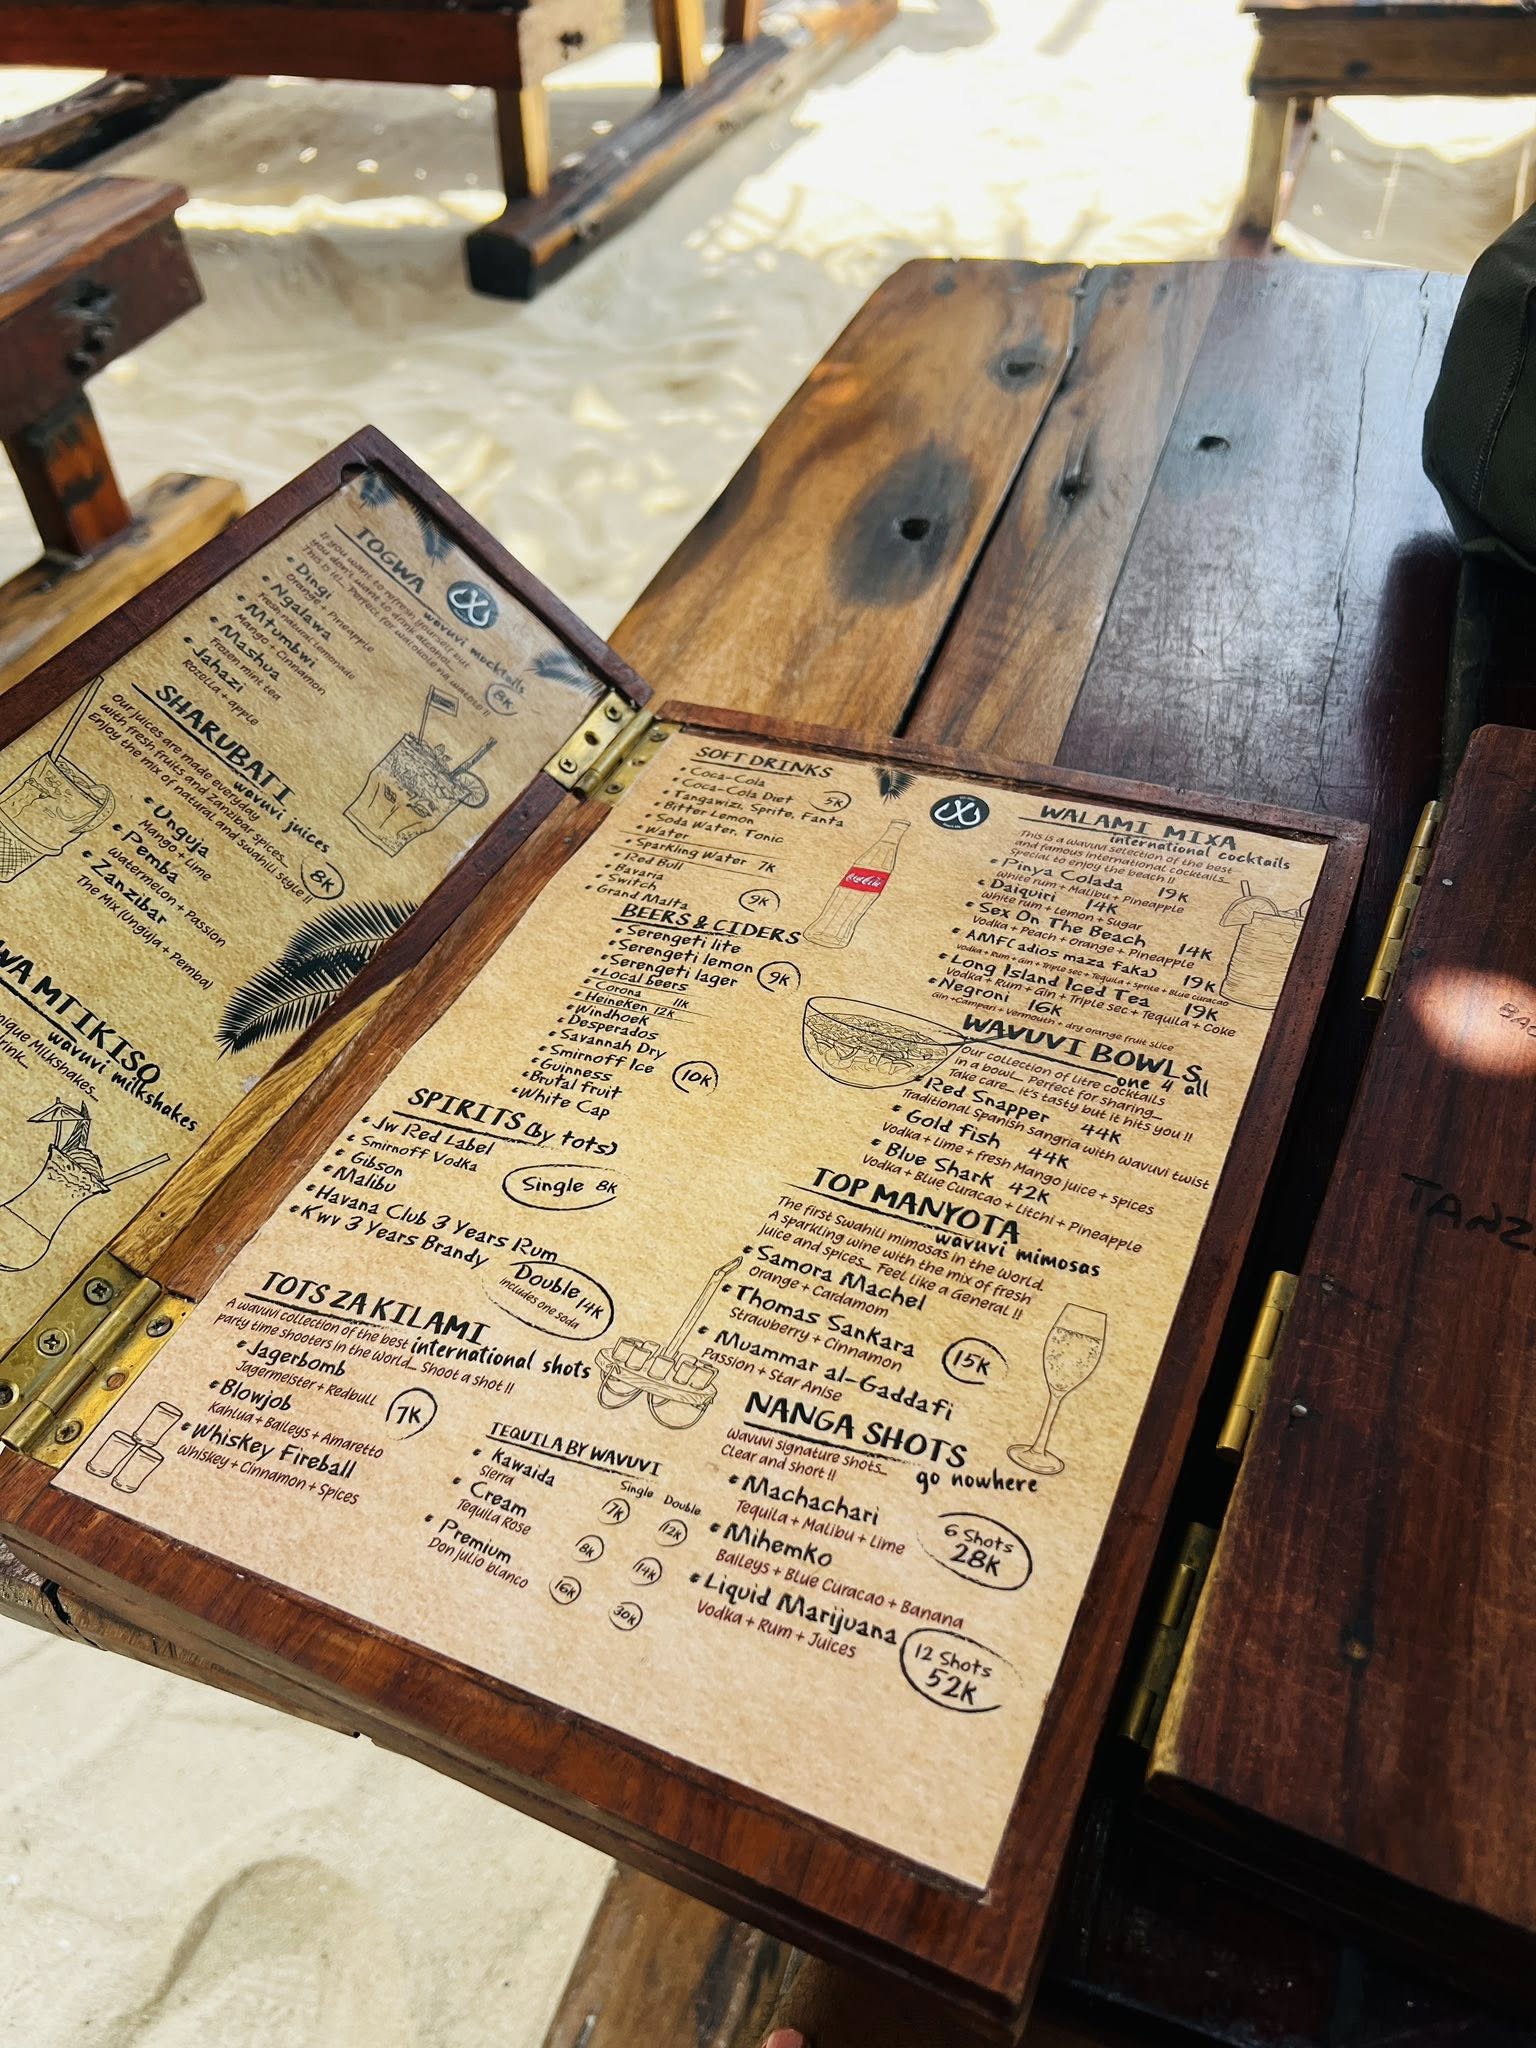 TOGWA
wavuvi mocktails
If you want to refresh yourself but
you don't want to drink alcohol...
This is it!... Perfect for walokole na watoto !!
8K
• Dingi
Orange + Pineapple
• Ngalawa
Fresh natural Lemonade
• Mtumbwi
Mango + Cinnamon
• Mashua
Frozen mint tea
• Jahazi
Rozella + apple
SHARUBATI
wavuvi juices
Our juices are made everyday
with fresh fruits and Zanzibar spices...
Enjoy the mix of natural and swahili style !!
8K
• Unguja
Mango + Lime
• Pemba
Watermelon + Passion
• Zanzibar
The Mix (Unguja + Pemba)
WA MTIKISO
wavuvi milkshakes
nique Milkshakes...
rink...
SOFT DRINKS
• Coca-Cola
• Coca-Cola Diet
5K
• Tangawizi, Sprite, Fanta
• Bitter Lemon
• Soda Water, Tonic
• Water
• Sparkling Water 7K
• Red Bull
• Bavaria
• Switch
9K
• Grand Malta
BEERS & CIDERS
• Serengeti lite
• Serengeti lemon
9K
• Serengeti lager
• Local beers
• Corona 11K
• Heineken 12K
• Windhoek
• Desperados
• Savannah Dry
• Smirnoff Ice
10K
• Guinness
• Brutal fruit
• White Cap
SPIRITS (by tots)
• Jw Red Label
• Smirnoff Vodka
• Gibson
Single 8K
• Malibu
• Havana Club 3 Years Rum
• Kwv 3 Years Brandy
Double 14K
includes one soda
TOTS ZA KILAMI
international shots
A wavuvi collection of the best
party time shooters in the world... Shoot a shot !!
• Jagerbomb
Jagermeister + Redbull
• Blowjob
7K
Kahlua + Baileys + Amaretto
• Whiskey Fireball
Whiskey + Cinnamon + Spices
TEQUILA BY WAVUVI
Single Double
• Kawaida
7K 12K
Sierra
• Cream
8K 14K
Tequila Rose
• Premium
16K 30K
Don julio blanco
WALAMI MIXA
international cocktails
This is a wavuvi selection of the best
and famous international cocktails...
Special to enjoy the beach !!
• Pinya Colada 19K
White rum + Malibu + Pineapple
• Daiquiri 14K
White rum + Lemon + Sugar
• Sex On The Beach 14K
Vodka + Peach + Orange + Pineapple
• AMF( adios maza faka) 19K
Vodka + Rum + Gin + Triple sec + Tequila + Sprite + Blue curacao
• Long Island Iced Tea 19K
Vodka + Rum + Gin + Triple Sec + Tequila + Coke
• Negroni 16K
Gin +Campari + Vermouth + dry orange fruit slice
WAVUVI BOWLS
one 4 all
Our collection of litre cocktails
in a bowl... Perfect for sharing...
Take care... it's tasty but it hits you !!
• Red Snapper 44K
Traditional Spanish sangria with wavuvi twist
• Gold fish 44K
Vodka + Lime + fresh Mango juice + spices
• Blue Shark 42K
Vodka + Blue Curacao + Litchi + Pineapple
TOP MANYOTA
wavuvi mimosas
The first Swahili mimosas in the world.
A sparkling wine with the mix of fresh
juice and spices... Feel like a General !!
• Samora Machel
Orange + Cardamom
• Thomas Sankara
Strawberry + Cinnamon
15K
• Muammar al-Gaddafi
Passion + Star Anise
NANGA SHOTS
go nowhere
Wavuvi signature shots...
Clear and short !!
• Machachari
Tequila + Malibu + Lime
6 Shots
28K
• Mihemko
Baileys + Blue Curacao + Banana
• Liquid Marijuana
Vodka + Rum + Juices
12 Shots
52K
Coca-Cola
TANZ